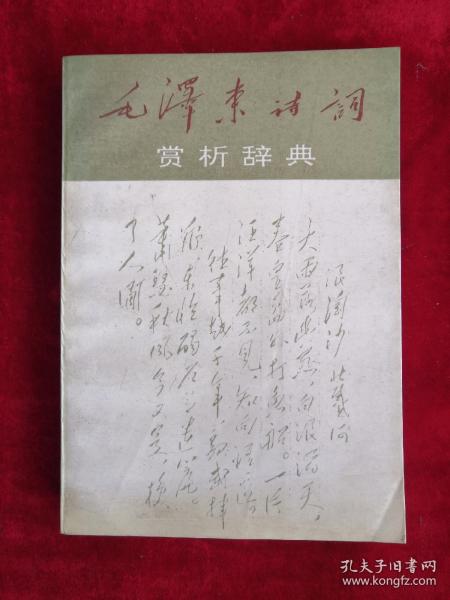 毛澤東诗詞
赏析辞典
浪淘沙 北戴河
大雨落幽燕,白浪滔天,
秦皇岛外打鱼船。一片
汪洋都不见,知向谁边
往事越千年,魏武挥
鞭,东临碣石有遗篇。
萧瑟秋风今又是,换
了人间。
孔夫子旧书网
www.kongfz.com